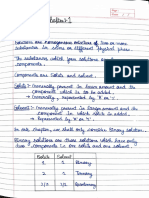 Chapter-1
Date
Page
Solutions are homogeneous mixture of two or more
substances in same or different physical phase.
The substances which form solutions are
components.
Components are Solute and Solvent.
Solute:- Generally present in lesser amount and the
component which is to be add.
→ Generally, represented by 'B' or
Solvent:- Generally present in larger amount and the
component in which solute is add.
→ Represented by 'A' or
In this chapter, we shall only simplier Binary solution.
Binary solutions are those solutions which have only
two components i.e one solute and one solvent
Solute Solvent
1 1 Binary
2 1 Ternary